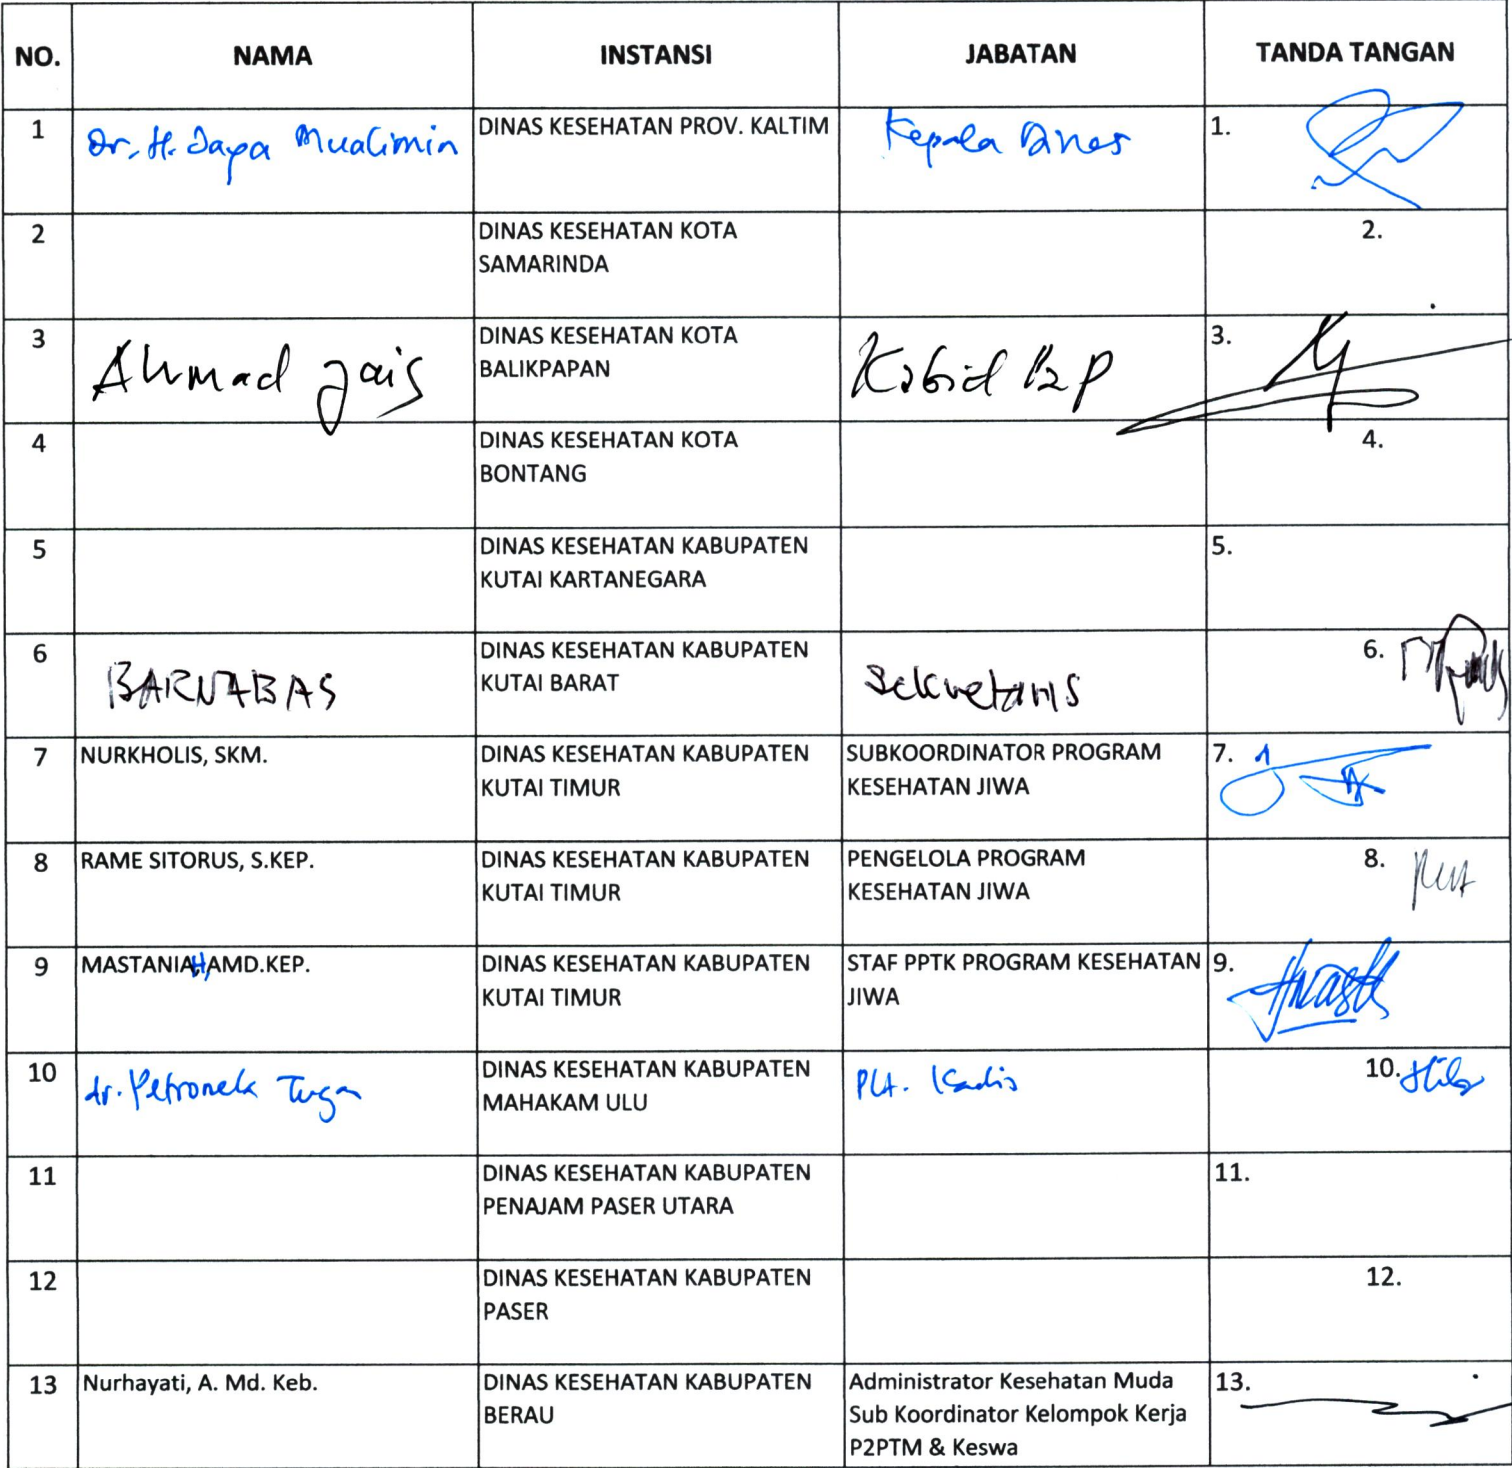 NO. NAMA INSTANSI JABATAN TANDA TANGAN
1 Dr. H. Jaya Mualimin DINAS KESEHATAN PROV. KALTIM Kepala Dinas 1.
2 DINAS KESEHATAN KOTA 2.
SAMARINDA
3 Ahmad Jais DINAS KESEHATAN KOTA Kabid P2P 3.
BALIKPAPAN
4 DINAS KESEHATAN KOTA 4.
BONTANG
5 DINAS KESEHATAN KABUPATEN 5.
KUTAI KARTANEGARA
6 BARNABAS DINAS KESEHATAN KABUPATEN Sekretaris 6.
KUTAI BARAT
7 NURKHOLIS, SKM. DINAS KESEHATAN KABUPATEN SUBKOORDINATOR PROGRAM 7.
KUTAI TIMUR KESEHATAN JIWA
8 RAME SITORUS, S.KEP. DINAS KESEHATAN KABUPATEN PENGELOLA PROGRAM 8.
KUTAI TIMUR KESEHATAN JIWA
9 MASTANIAH, AMD.KEP. DINAS KESEHATAN KABUPATEN STAF PPTK PROGRAM KESEHATAN 9.
KUTAI TIMUR JIWA
10 dr. Petronela Tugan DINAS KESEHATAN KABUPATEN Plt. Kadis 10.
MAHAKAM ULU
11 DINAS KESEHATAN KABUPATEN 11.
PENAJAM PASER UTARA
12 DINAS KESEHATAN KABUPATEN 12.
PASER
13 Nurhayati, A. Md. Keb. DINAS KESEHATAN KABUPATEN Administrator Kesehatan Muda 13.
BERAU Sub Koordinator Kelompok Kerja
P2PTM & Keswa